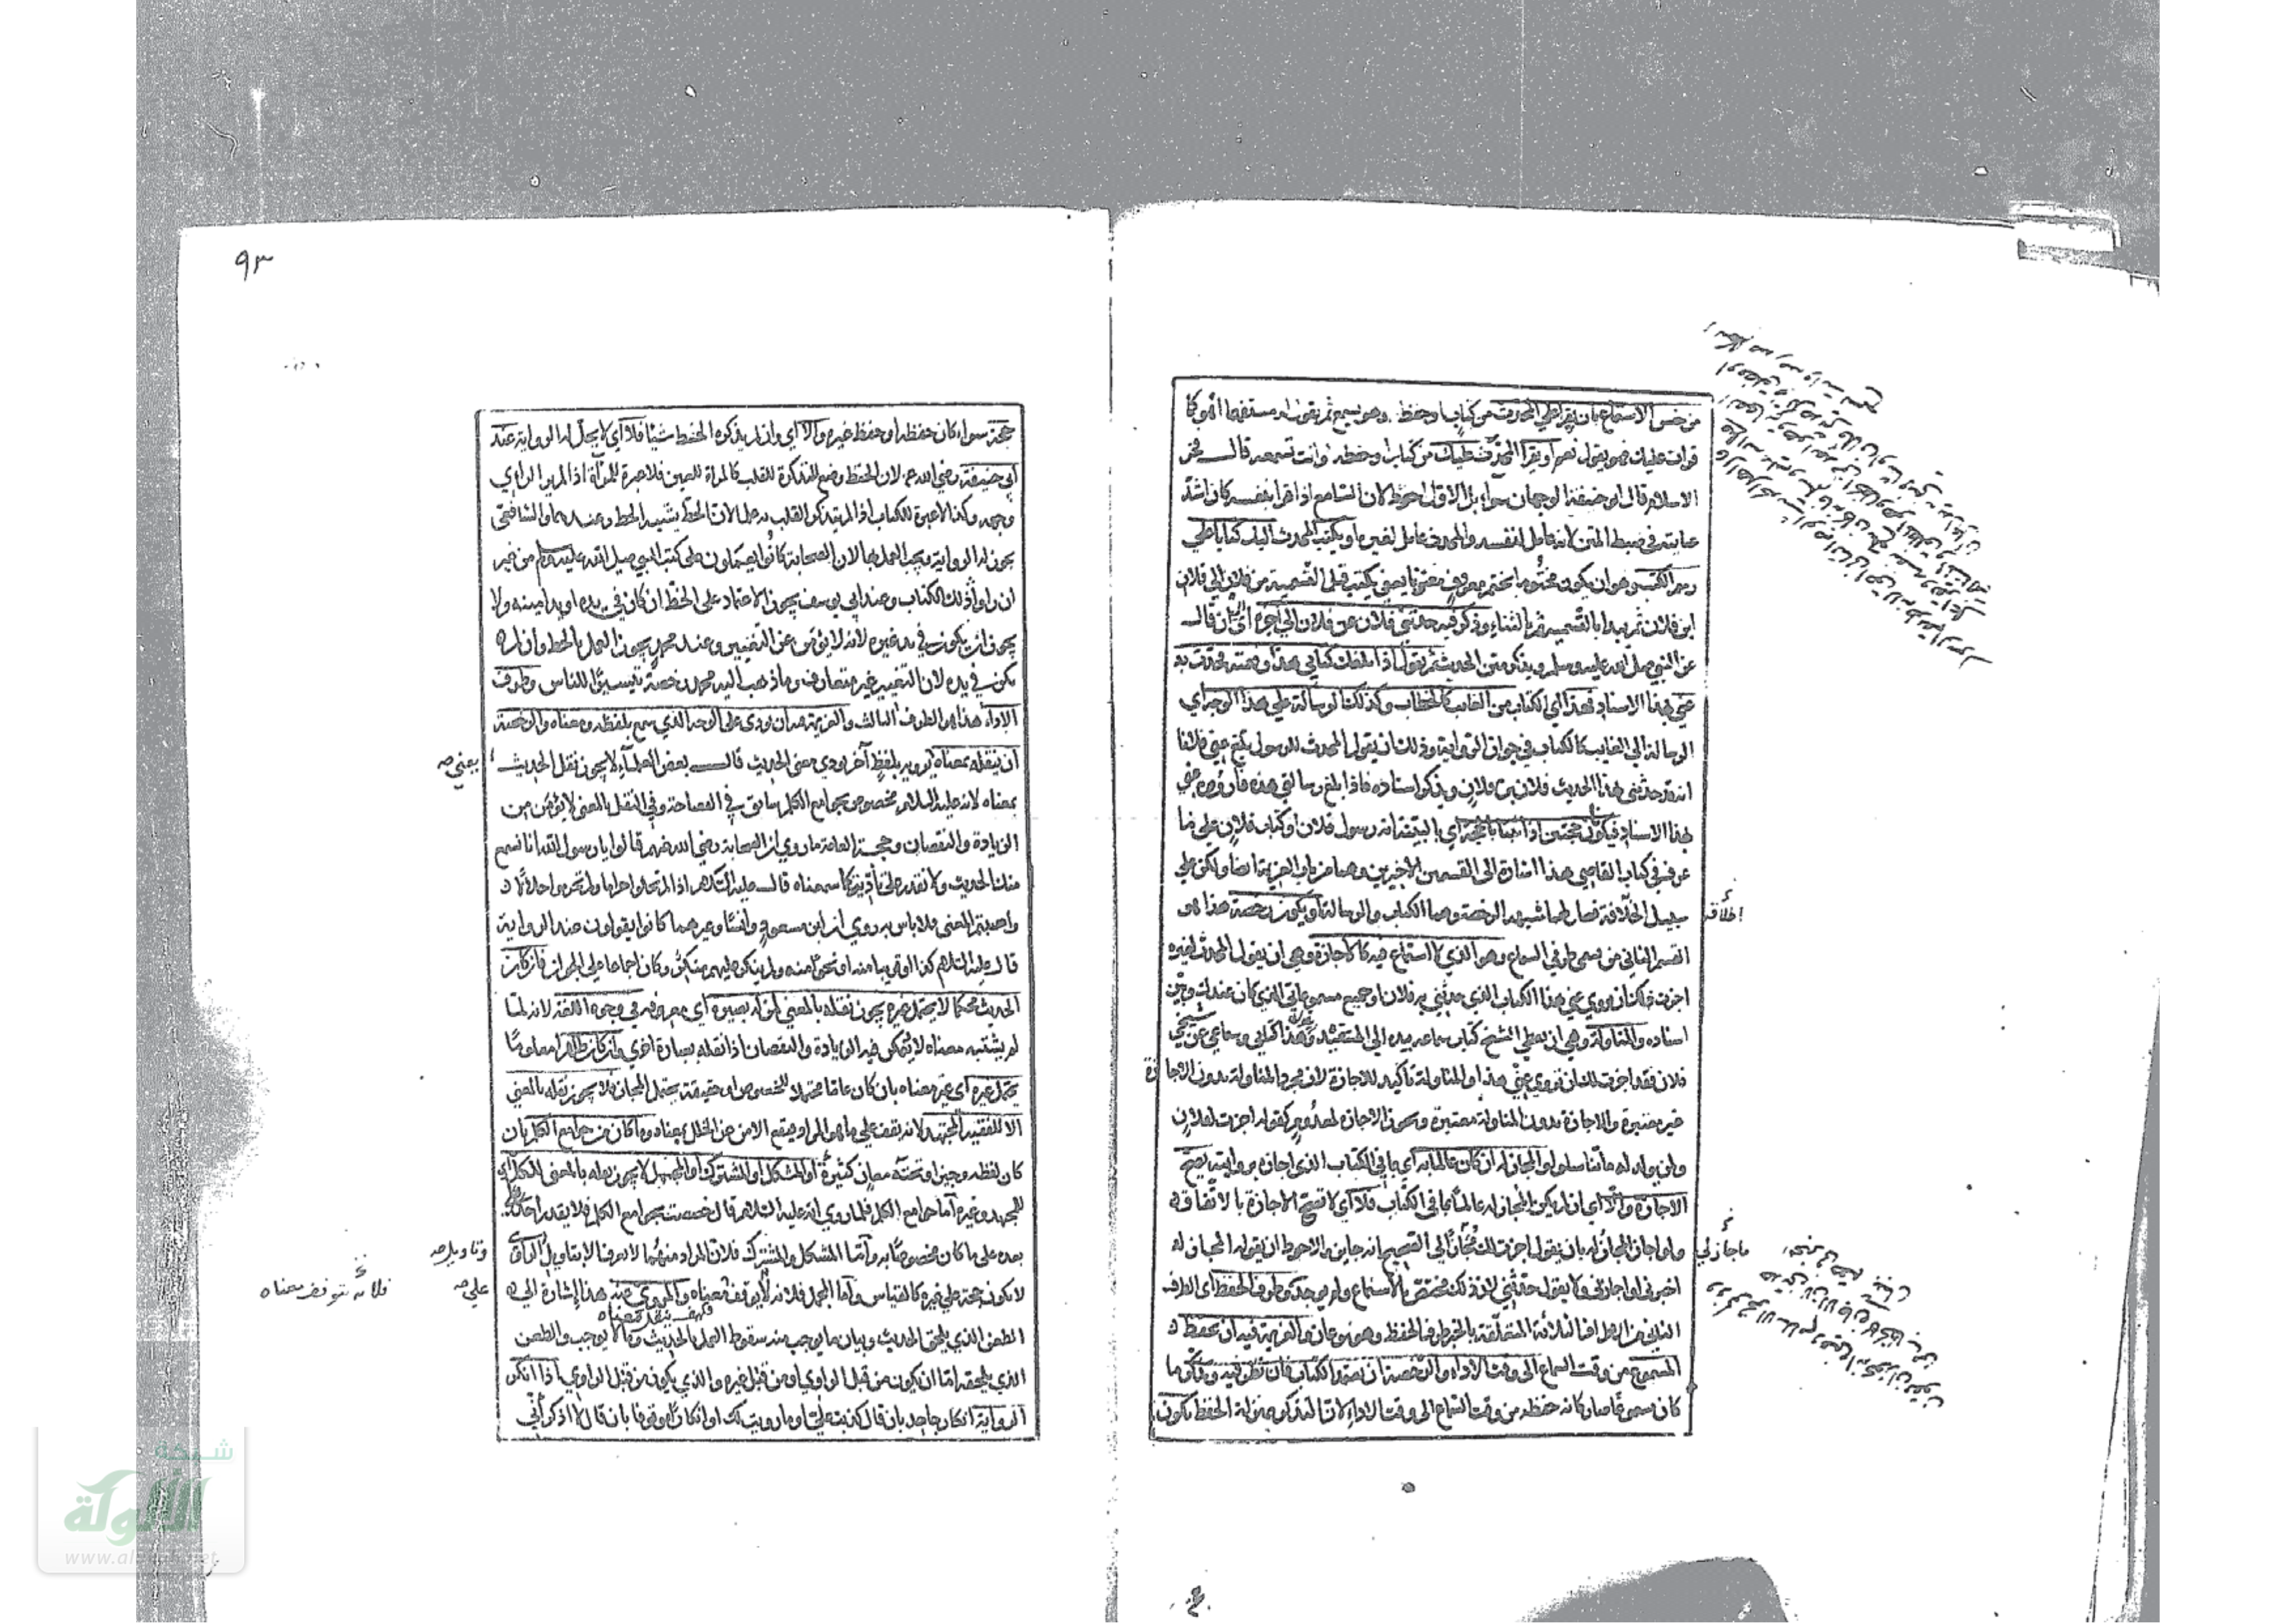 من جنس الاستماع بان يقرا علي المحدث من كتاب او حفظ وهو يسمع ثم يقول له مستفهما اهو كما
قرات عليك فهو يقول نعم او يقرا المحدث عليك من كتاب او حفظ وانت تسمعه قال فخر
الاسلام قال ابو حنيفة الوجهان سواء بل الاول احوط لان السامع اذا قرا بنفسه كان اشد
عناية في ضبط المتن لانه عامل لنفسه والمحدث عامل لغيره او يكتب المحدث اليك كتابا علي
رسم الكتب وهو ان يكون مختوما بختم معروف معنونا يعني يكتب قبل التسمية من فلان الي فلان
ابن فلان ثم يبدا بالتسمية ثم بالثناء وذكر فيه حدثني فلان عن فلان الي اخره اي الي ان قال
عن النبي صلي الله عليه وسلم ويذكر متن الحديث ثم يقول اذا بلغك كتابي هذا وفهمته فحدث به
عني بهذا الاسناد فهذا اي الكتاب من الغايب كالخطاب وكذلك الرسالة علي هذا الوجه اي
الرسالة الي الغايب كالكتاب في جواز الرواية وذلك ان يقول المحدث للرسول بلغ عني فلانا
انه قد حدثني بهذا الحديث فلان بن فلان ويذكر اسناده فاذا بلغ رسالتي هذه فاروه عني
بهذا الاسناد فيكونان حجتين اذا ثبتا بالحجة اي بالبينة انه رسول فلان او كتاب فلان علي ما
عرف في كتاب القاضي هذا اشارة الي القسمين الاخيرين وهما من باب العزيمة ايضا ولكن علي
سبيل الخلافة فصار لهما شبه بالرخصة وهما الكتاب والرسالة او يكون رخصة هذا هو
القسم الثاني من قسمي طرف السماع وهو الذي لا استماع فيه كالاجازة وهي ان يقول المحدث لغيره
اجزت لك ان تروي عني هذا الكتاب الذي حدثني به فلان او جميع مسموعاتي الذي كان عندك وبين
اسناده والمناولة وهي ان يعطي الشيخ كتاب سماعه بيده الي المستفيد وقال هذا كتابي وسماعي عن شيخي
فلان فقد اجزت لك ان تروي عني هذا والمناولة تاكيد للاجازة لان مجرد المناولة بدون الاجازة
غير معتبرة والاجازة بدون المناولة معتبرة وتجوز الاجازة لمعدوم كقوله اجزت لفلان
ولمن يولد له ما تناسلوا والمجاز له ان كان عالما به اي بما في الكتاب الذي اجازه بروايته يصح
الاجازة والا اي ان لم يكن المجاز له عالما بما في الكتاب فلا اي لا تصح الاجازة بالاتفاق
ولو اجاز المجاز له بان يقول اجزت لك مجازاتي الصحيح انه جايز والاحوط ان يقول المجاز له
اخبرني او اجازني ولا يقول حدثني لان ذلك مختص بالاستماع ولم يوجد وطرف الحفظ اي الطرف
الثاني من الاطراف الثلاثة المتعلقة بالخبر طرف الحفظ وهو نوعان والعزيمة فيه ان يحفظ
المسموع من وقت السماع الي وقت الاداء والرخصة ان يعتمد الكتاب فان نظر فيه وتذكر ما
كان مسموعا صار كانه حفظه من وقت السماع الي وقت الاداء لان التذكر بمنزلة الحفظ يكون
اخلافة
ما جاز لي
٩٣
حجة سواء كان حفظه او حفظ غيره والا اي وان لم يذكره الخط شيئا فلا اي لا يحل له الرواية عند
ابي حنيفة رضي الله عنه لان الخط وضع للتذكرة للقلب كالمراة للعين فلا عبرة للمراة اذا لم ير الراي
وجهه وكذا لا عبرة للكتاب اذا لم يتذكر القلب به علما لان الخط يشبه الخط وعندهما والشافعي
يجوز له الرواية ويجب العمل بها لان الصحابة كانوا يعملون علي كتب النبي صلي الله عليه وسلم من غير
ان راوا ذلك الكتاب وعند ابي يوسف يجوز الاعتماد علي الخط ان كان في يده او يد امينه ولا
يجوز ان يكون في يد غيره لانه لا يؤمن عن التغيير وعند محمد يجوز العمل بالخط وان لم
يكن في يده لان التغيير غير متعارف وما ذهب اليه محمد رخصة تيسيرا للناس وطرف
الاداء هذا هو الطرف الثالث والعزيمة فيه ان يودي علي الوجه الذي سمع بلفظه ومعناه والرخصة
ان ينقله بمعناه اي يرويه بلفظ آخر يودي معني الحديث قال بعض العلماء لا يجوز نقل الحديث
بمعناه لانه عليه السلام مخصوص بجوامع الكلم سابق في الفصاحة وفي النقل بالمعني لا يؤمن من
الزيادة والنقصان وحجة العامة ما روي ان الصحابة رضي الله عنهم قالوا يا رسول الله انا نسمع
منك الحديث ولا نقدر علي تأديته كما سمعناه قال عليه السلام اذا لم تحلوا حراما ولم تحرموا حلالا
واصبتم المعني فلا باس به وروي ان ابن مسعود وانسا وغيرهما كانوا يقولون عند الرواية
قال عليه السلام كذا او قريبا منه او نحوا منه ولم ينكر عليهم منكر وكان اجماعا علي الجواز فان كان
الحديث محكما لا يحتمل غيره يجوز نقله بالمعني لمن له بصيرة اي معرفة في وجوه اللغة لانه لما
لم يشتبه معناه لا يتمكن فيه الزيادة والنقصان اذا نقله بعبارة اخري وان كان ظاهرا معلوما
يحتمل غيره اي غير معناه بان كان عاما محتملا للخصوص او حقيقة يحتمل المجاز فلا يجوز نقله بالمعني
الا للفقيه المجتهد لانه يقف علي ما هو المراد فيقع الامن عن الخلل بمعناه وما كان من جوامع الكلم بان
كان لفظه وجيزا وتحته معان كثيرة او المشكل او المشترك او المجمل لا يجوز نقله بالمعني للكل اي
للمجتهد وغيره اما جوامع الكلم فلما روي انه عليه السلام قال خصصت بجوامع الكلم فلا يقدر احد
بعده علي ما كان مخصوصا به واما المشكل والمشترك فلان المراد منهما لا يعرف الا بتاويل الراوي
لا يكون حجة علي غيره كالقياس واما المجمل فلانه لا يوقف معناه والمروي عنه هذا اشارة الي
الطعن الذي يلحق الحديث وبيان ما يوجب منه سقوط العمل بالحديث وما لا يوجب والطعن
الذي يلحقه اما ان يكون من قبل الراوي او من قبل غيره والذي يكون من قبل الراوي اذا انكر
الرواية انكار جاحد بان قال كذبت علي او ما رويت لك او انكارا موقوفا بان قال لا اذكر اني
يعني صح
وتاويله صح
علي صح
فلانه يتوقف معناه
شبكة
الألوكة